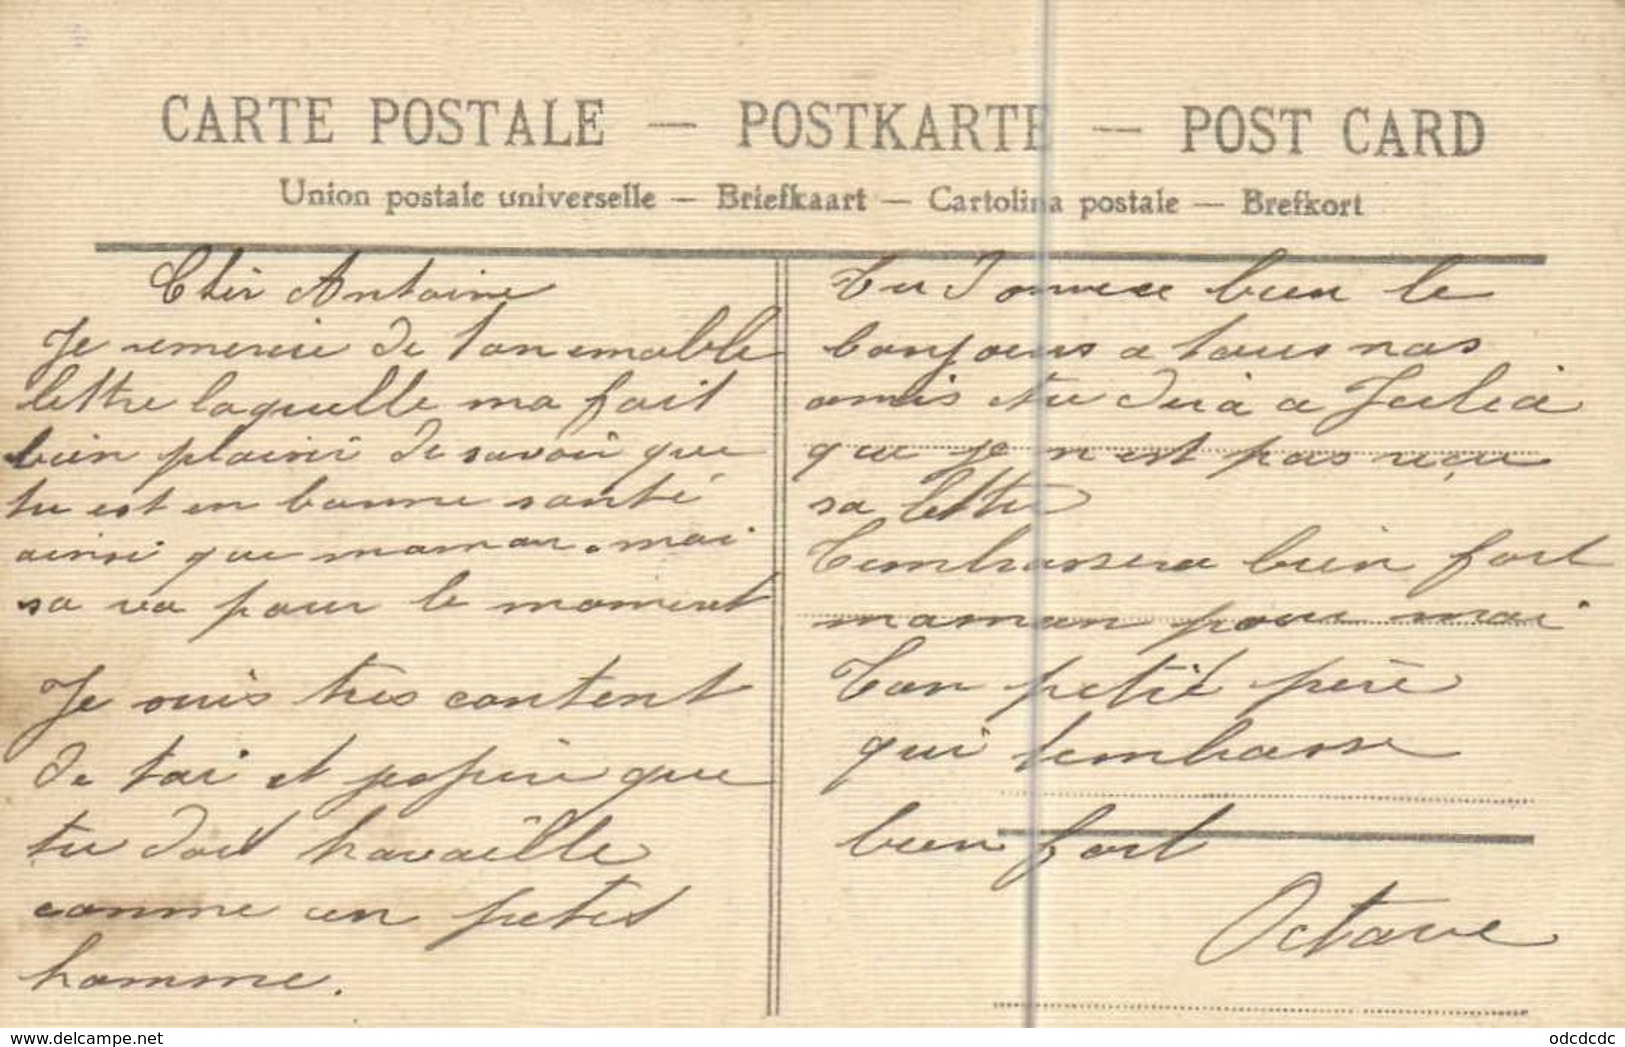 CARTE POSTALE — POSTKARTE — POST CARD
Union postale universelle — Briefkaart — Cartolina postale — Brefkort
Cher Antoine
Je remercie de ton emable
lettre laquelle ma fait
bien plaisir de savoir que
tu est en bonne santé
ainsi que maman. moi
sa va pour le moment
Je suis très content
de toi et jespère que
tu doit travaille
comme un petit
homme.
Tu donnera bien le
bonjours a tous nos
amis et tu dira a Julia
que je n est pas reçu
sa lettre
T embrassera bien fort
maman pour moi
Ton petit père
qui tembrasse
bien fort
Octave
www.delcampe.net
odcdcdc